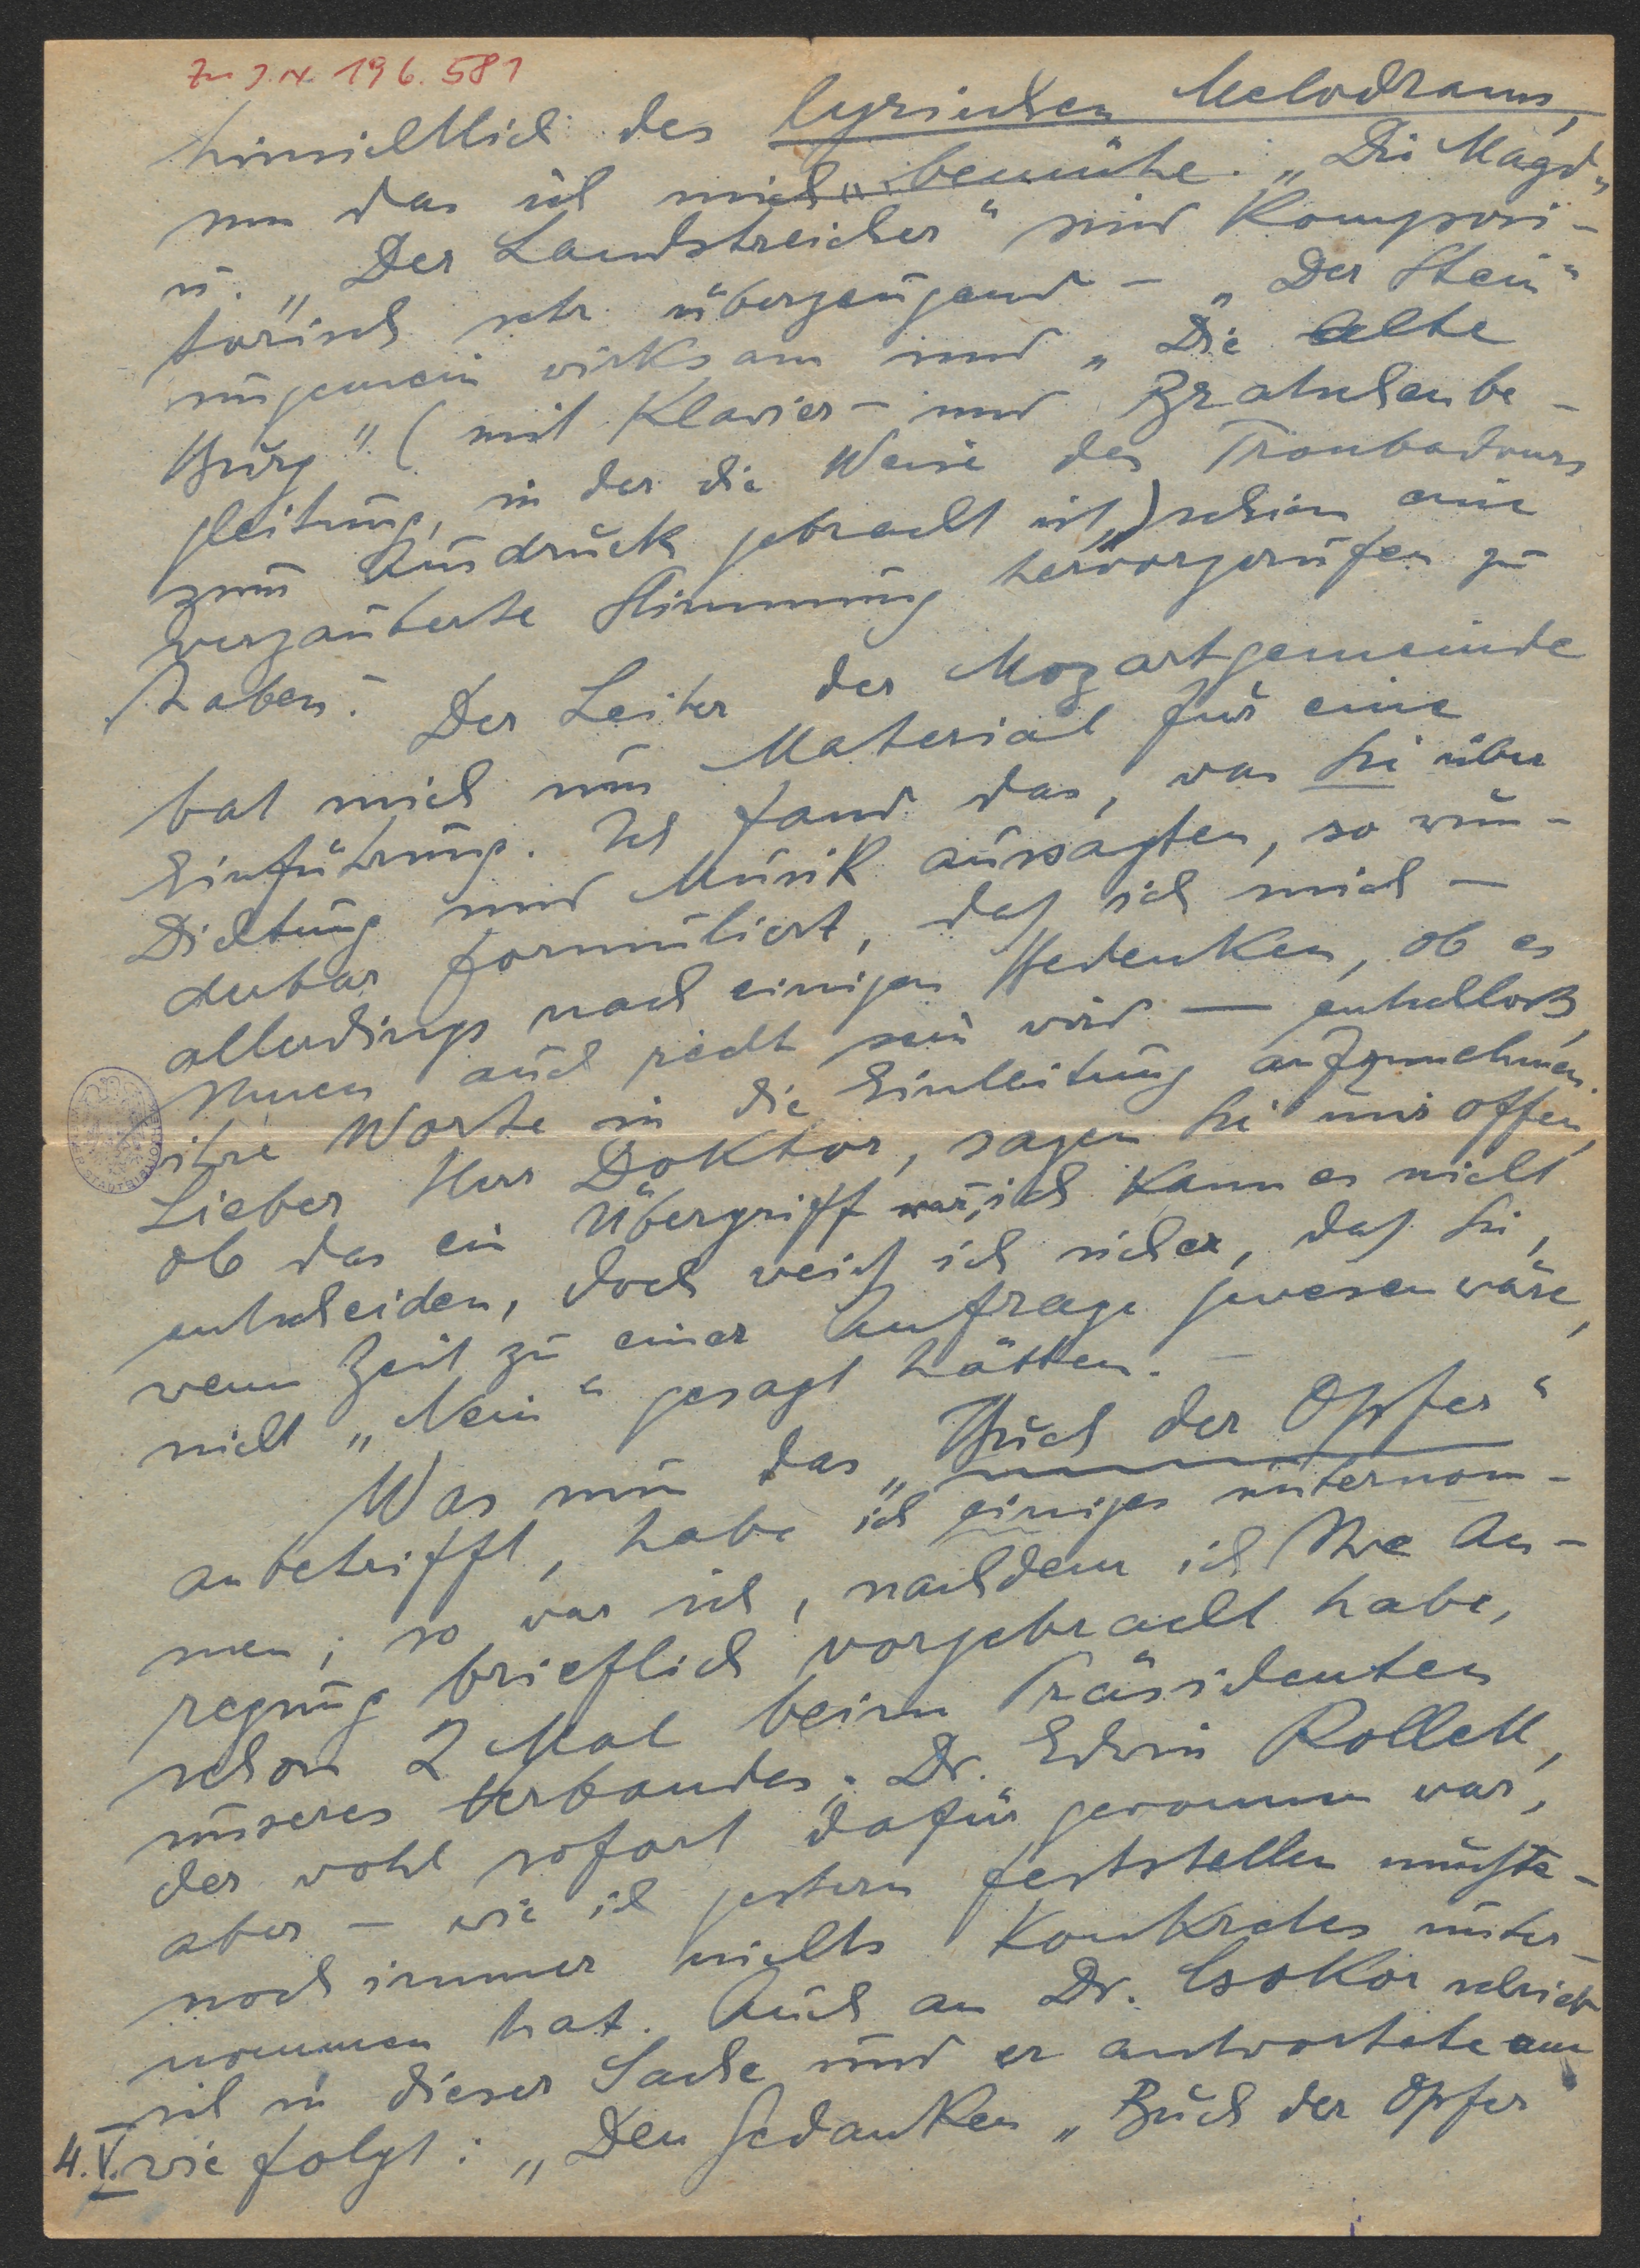 Zu J.N. 196.581
hinsichtlich des lyrischen Melodrams,
um das ich mich bemühe. „Die Magd"
u. „Der Landstreicher" sind komposi-
torisch sehr überzeugend – „Der Stein"
ungemein wirksam und „Die alte
Burg" (mit Klavier- und Bratschenbe-
gleitung, in der die Weise des Troubadours
zum Ausdruck gebracht ist,) schien eine
verzauberte Stimmung hervorgerufen zu
haben.
Der Leiter der Mozartgemeinde
bat mich um Material für eine
Einführung. Ich fand das, was Sie über
Dichtung und Musik aussagten, so wun-
derbar formuliert, daß ich mich –
allerdings nach einigen Bedenken, ob es
Ihnen auch recht sein wird – entschloß,
ihre Worte in die Einleitung aufzunehmen.
Lieber Herr Doktor, sagen Sie mir offen,
ob das ein Übergriff war, ich kann es nicht
entscheiden, doch weiß ich sicher, daß Sie,
wenn Zeit zu einer Anfrage gewesen wäre,
nicht „Nein" gesagt hätten. –
Was nun das „Buch der Opfer"
anbetrifft, habe ich einiges unternom-
men; so war ich, nachdem ich Ihre An-
regung brieflich vorgebracht habe,
schon 2 Mal beim Präsidenten
unseres Verbandes, Dr. Edwin Rollett,
der wohl sofort dafür gewonnen war,
aber – wie ich gestern feststellen mußte –
noch immer nichts Konkretes unter-
nommen hat. Auch an Dr. Csokor schrieb
ich in dieser Sache und er antwortete am
4. V. wie folgt: „Den Gedanken „Buch der Opfer"